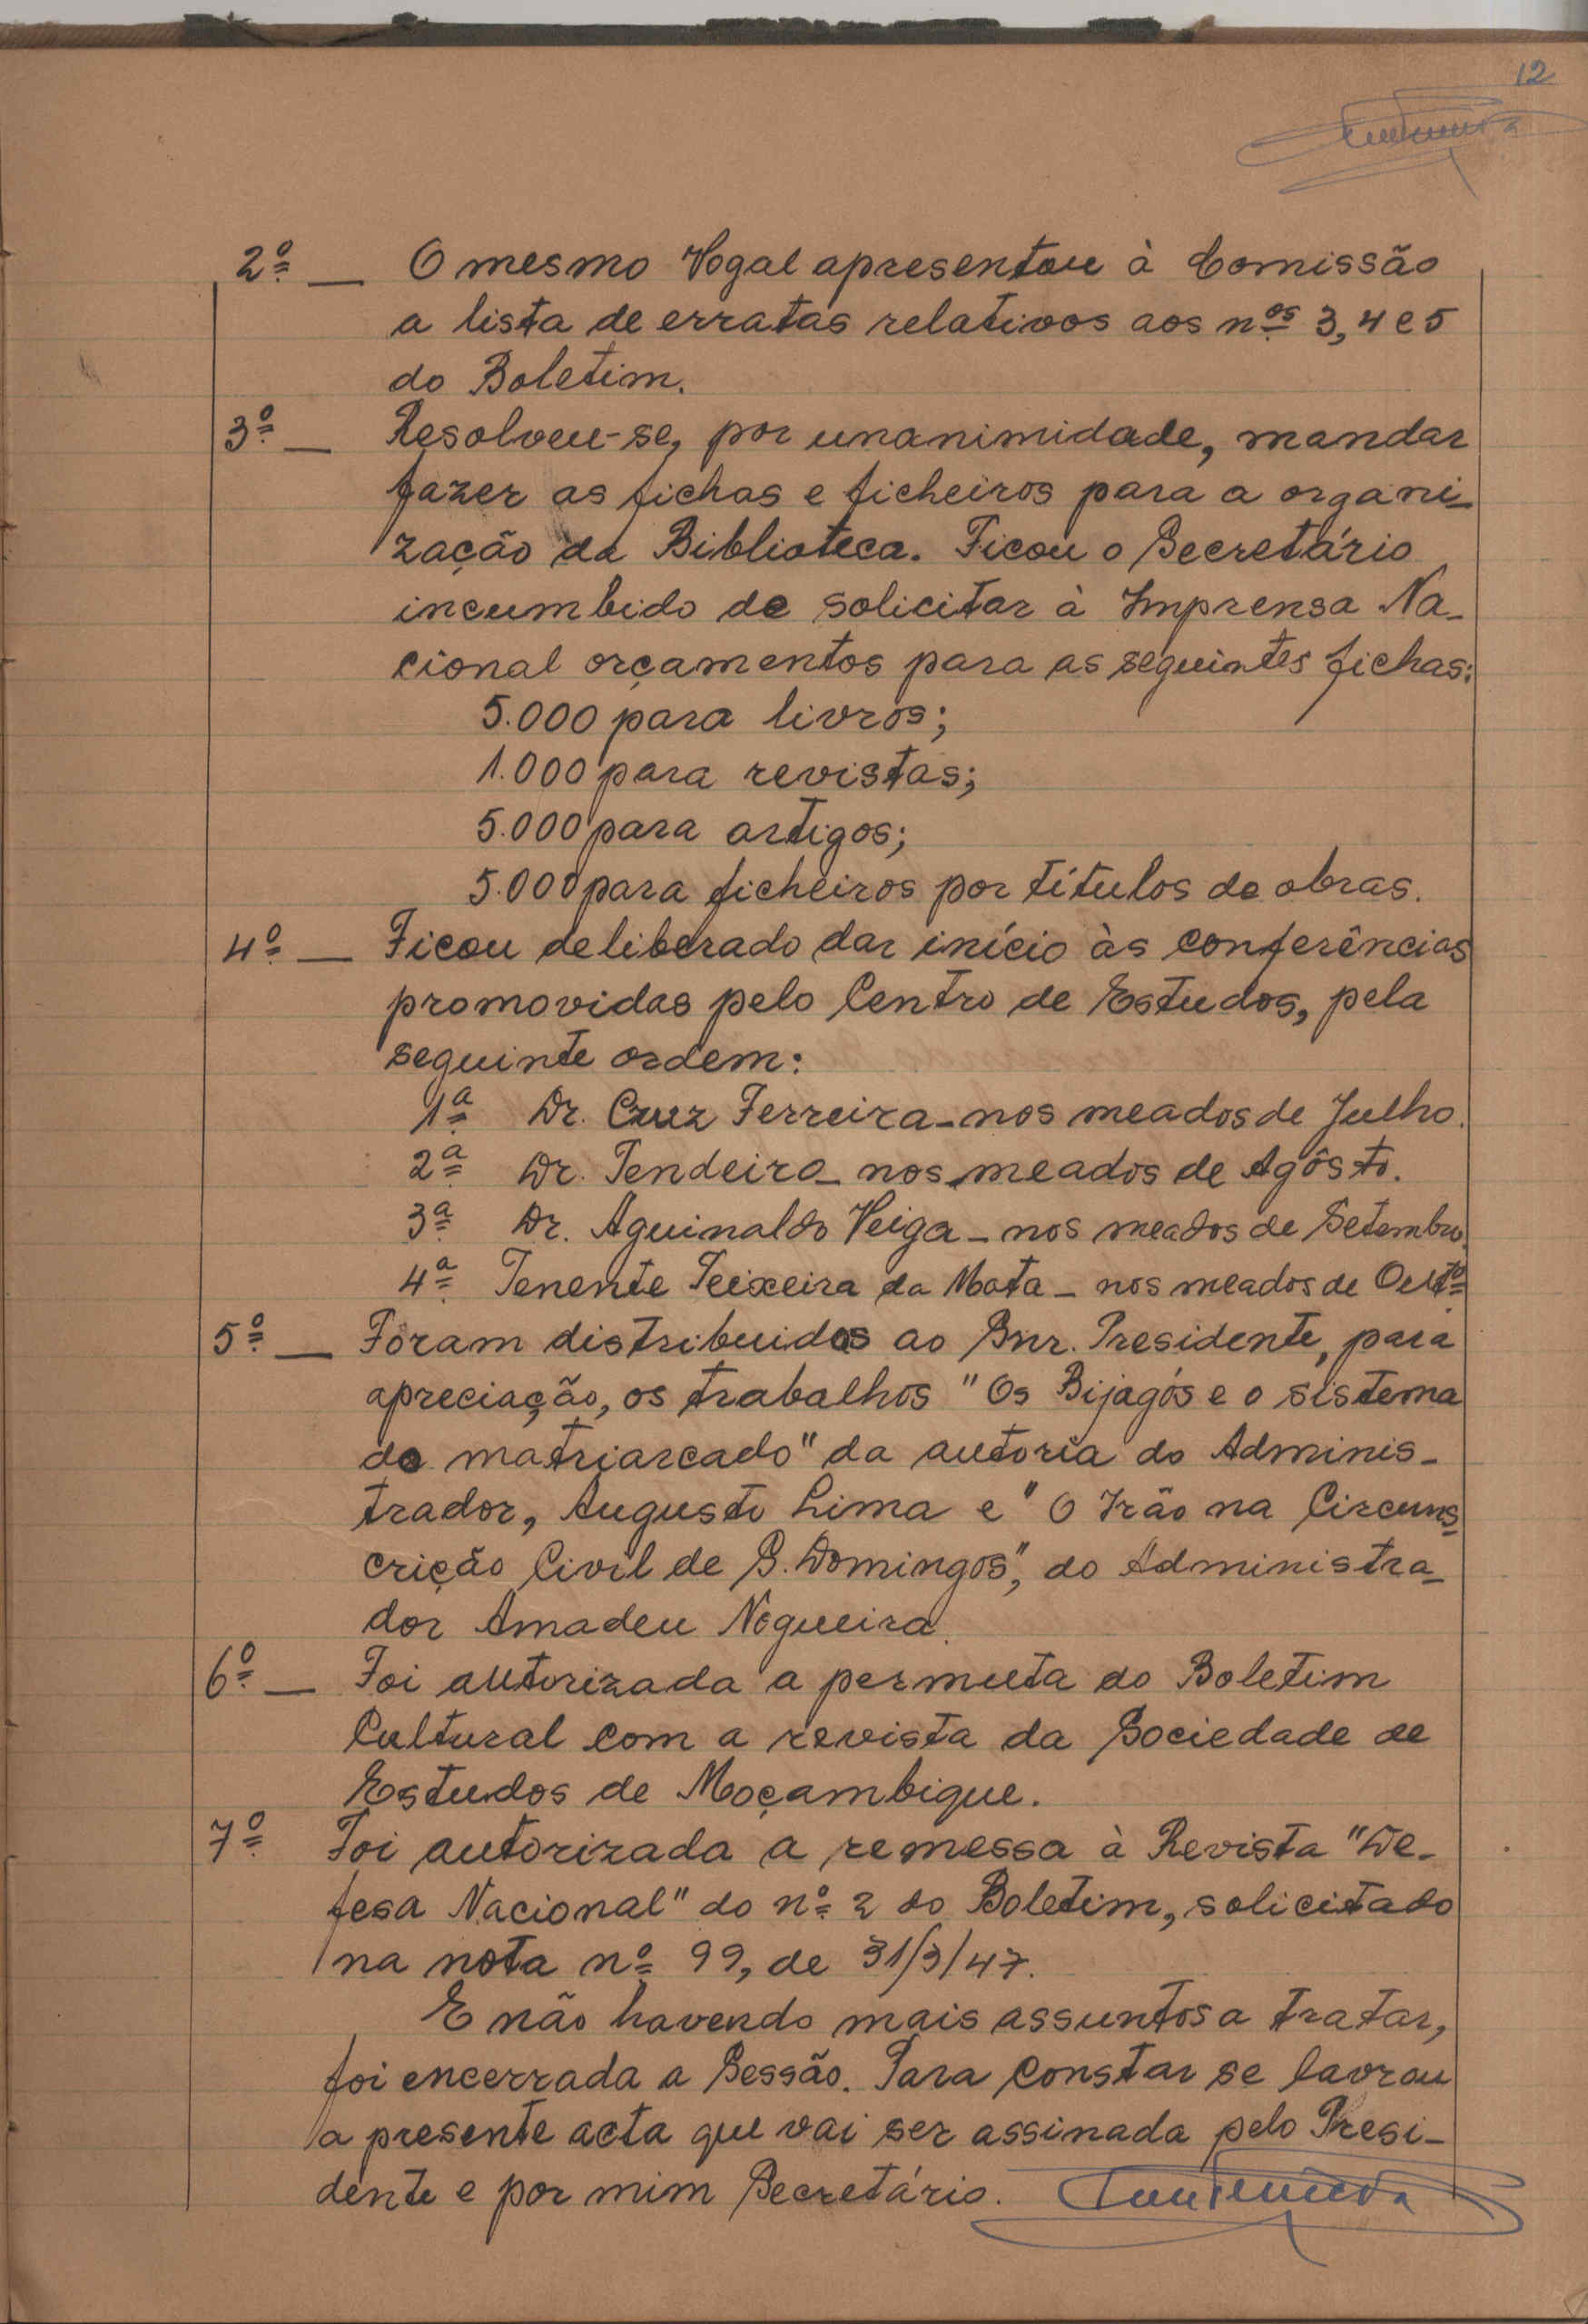 12
2º — O mesmo Vogal apresentou à Comissão
a lista de erratas relativos aos nºs 3, 4 e 5
do Boletim.
3º — Resolveu-se, por unanimidade, mandar
fazer as fichas e ficheiros para a organi-
zação da Biblioteca. Ficou o Secretário
incumbido de solicitar à Imprensa Na-
cional orçamentos para as seguintes fichas:
5.000 para livros;
1.000 para revistas;
5.000 para artigos;
5.000 para ficheiros por títulos de obras.
4º — Ficou deliberado dar início às conferências
promovidas pelo Centro de Estudos, pela
seguinte ordem:
1ª Dr. Cruz Ferreira - nos meados de Julho.
2ª Dr. Tendeiro - nos meados de Agôsto.
3ª Dr. Aguinaldo Veiga - nos meados de Setembro.
4ª Tenente Teixeira da Mota - nos meados de Outº
5º — Foram distribuidos ao Snr. Presidente, para
apreciação, os trabalhos "Os Bijagós e o sistema
do matriarcado" da autoria do Adminis-
trador, Augusto Lima e "O Irão na Circuns-
crição Civil de S. Domingos", do Administra-
dor Amadeu Nogueira.
6º — Foi autorizada a permuta do Boletim
Cultural com a revista da Sociedade de
Estudos de Moçambique.
7º Foi autorizada a remessa à Revista "De-
fesa Nacional" do nº 2 do Boletim, solicitado
na nota nº 99, de 31/3/47.
E não havendo mais assuntos a tratar,
foi encerrada a Sessão. Para constar se lavrou
a presente acta que vai ser assinada pelo Presi-
dente e por mim Secretário.